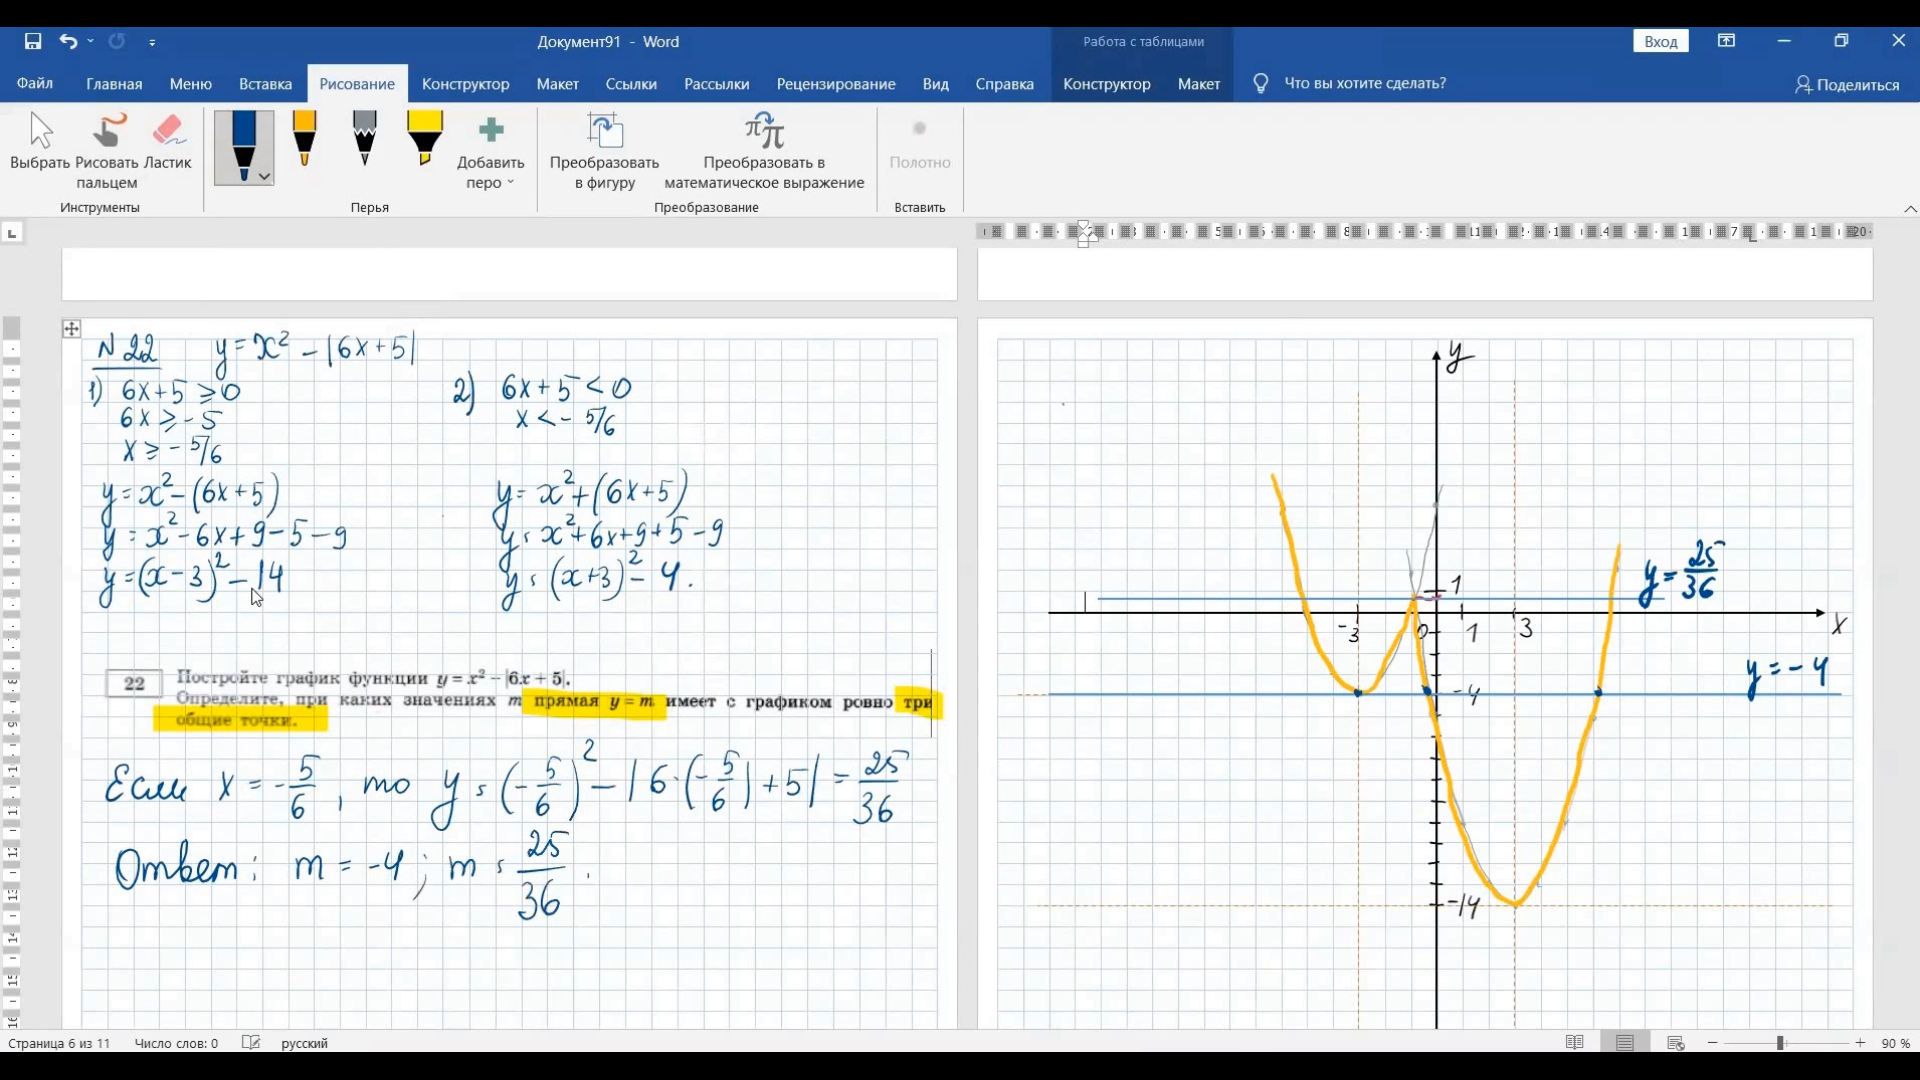 Документ91 - Word
Работа с таблицами
Вход
Файл Главная Меню Вставка Рисование Конструктор Макет Ссылки Рассылки Рецензирование Вид Справка Конструктор Макет Что вы хотите сделать? Поделиться
Выбрать Рисовать пальцем Ластик
Добавить перо
Преобразовать в фигуру
Преобразовать в математическое выражение
Полотно
Инструменты Перья Преобразование Вставить
N 22 y = x² - |6x+5|
1) 6x+5 ≥ 0
6x ≥ -5
x ≥ -5/6
y = x² - (6x+5)
y = x² - 6x + 9 - 5 - 9
y = (x-3)² - 14
2) 6x+5 < 0
x < - 5/6
y = x² + (6x+5)
y = x² + 6x + 9 + 5 - 9
y = (x+3)² - 4.
22 Постройте график функции y = x² - |6x + 5|.
Определите, при каких значениях m прямая y = m имеет с графиком ровно три
общие точки.
Если x = -5/6, то y = (-5/6)² - |6·(-5/6)+5| = 25/36
Ответ: m = -4; m = 25/36.
y
1
y = 25/36
-3 0 1 3 x
y = -4
-4
-14
Страница 6 из 11 Число слов: 0 русский 90 %